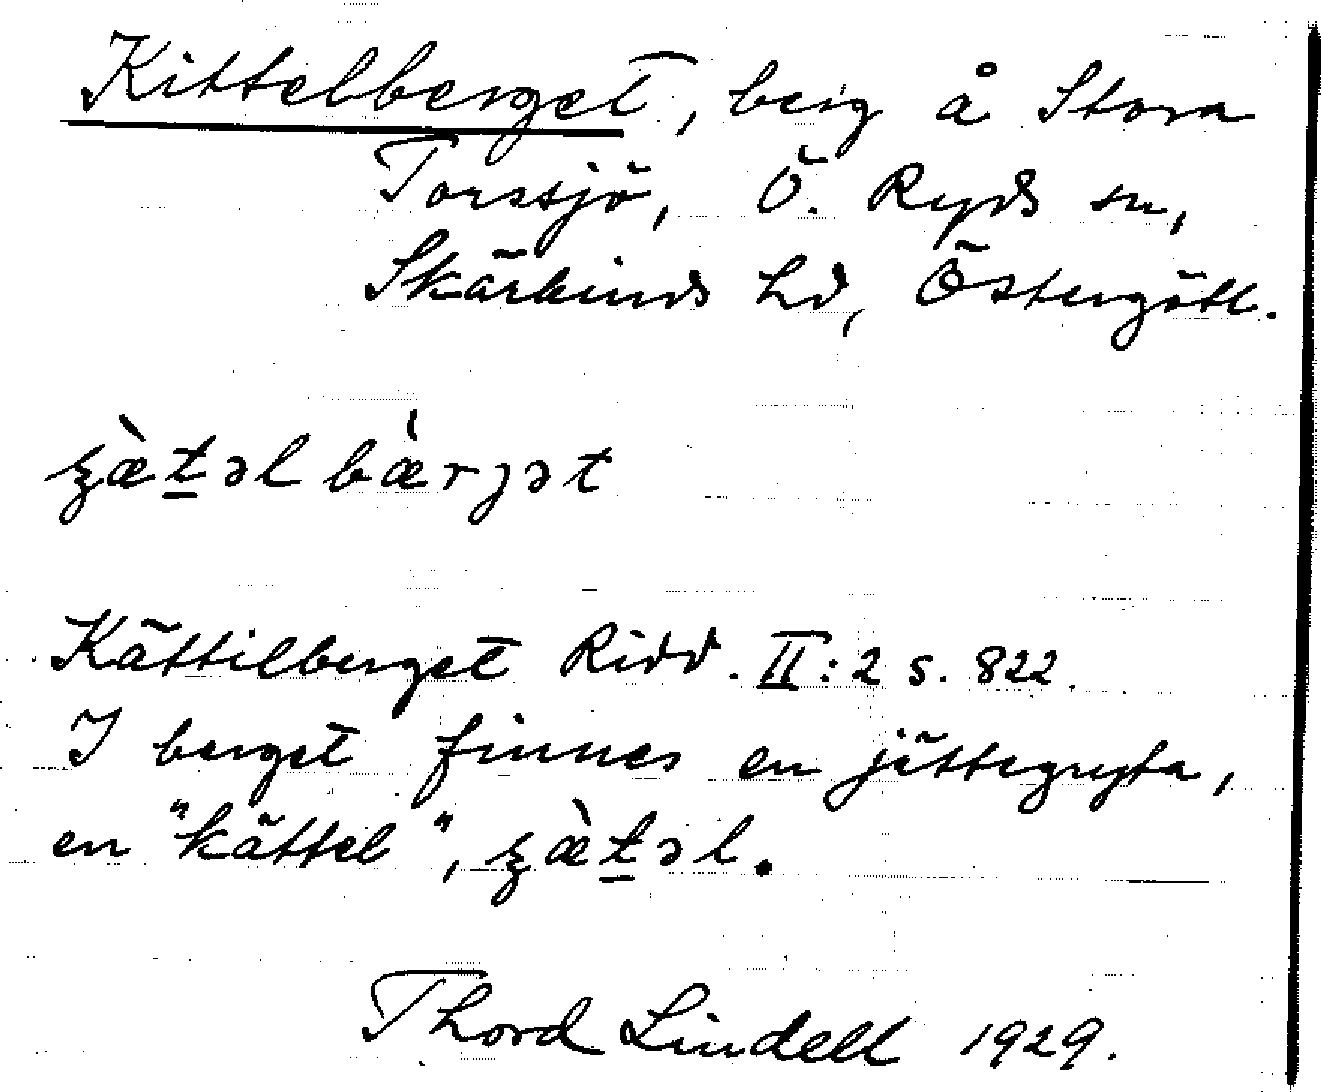 Kittelberget, berg å Stora
Torstjö, Ö. Ryds sn,
Skärkinds hd, Östergötl.
ꞩæ̀t̲əl bæ̀rjət
Kättilberget Ridd. II:2 s. 822.
I berget finnes en jättegryta,
en "kättel", ꞩæ̀t̲əl.
Thord Lindell 1929.